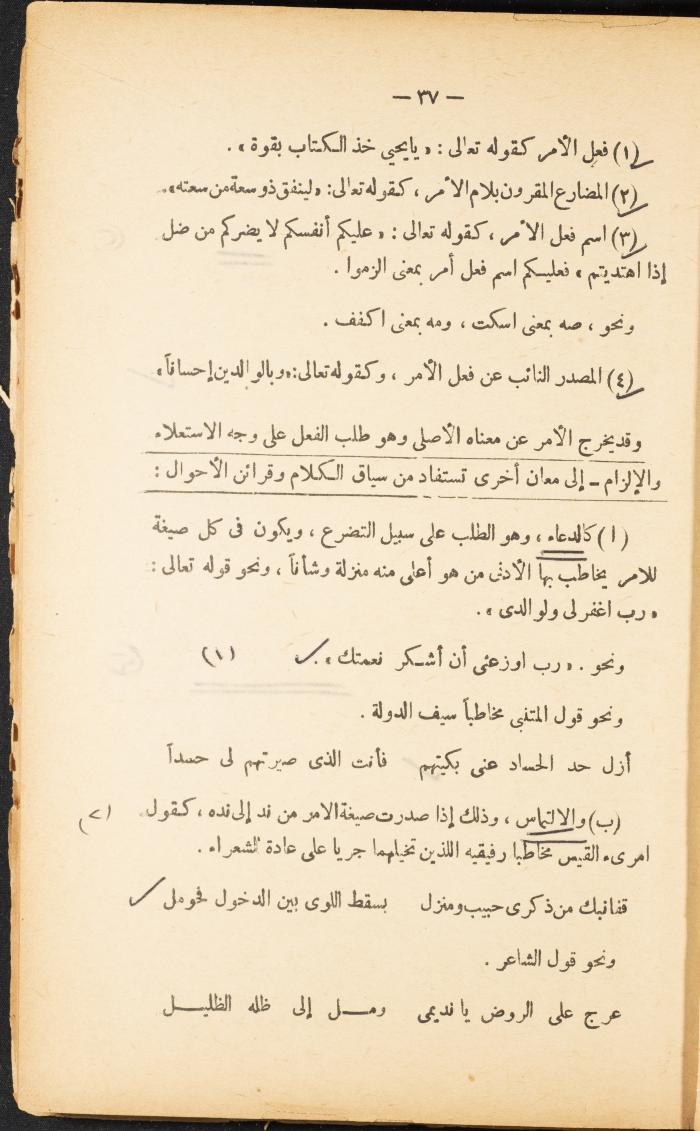 — ٣٧ —
(١) فعل الأمر كقوله تعالى : « يايحيي خذ الكتاب بقوة » .
(٢) المضارع المقرون بلام الأمر ، كقوله تعالى : «لينفق ذو سعة من سعته» .
(٣) اسم فعل الأمر ، كقوله تعالى : « عليكم أنفسكم لا يضركم من ضل
إذا اهتديتم » فعليكم اسم فعل أمر بمعنى الزموا .
ونحو ، صه بمعنى اسكت ، ومه بمعنى اكفف .
(٤) المصدر النائب عن فعل الأمر ، وكقوله تعالى : «وبالوالدين إحساناً»
وقد يخرج الأمر عن معناه الأصلى وهو طلب الفعل على وجه الاستعلاء
والإلزام ــ إلى معان أخرى تستفاد من سياق الكلام وقرائن الأحوال :
(ا) كالدعاء ، وهو الطلب على سبيل التضرع ، ويكون فى كل صيغة
للامر يخاطب بها الأدنى من هو أعلى منه منزلة وشأناً ، ونحو قوله تعالى :
« رب اغفر لى ولوالدى » .
ونحو . « رب اوزعنى أن أشكر نعمتك » . (١)
ونحو قول المتنبى مخاطباً سيف الدولة .
أزل حد الحساد عنى بكبتهم فأنت الذى صيرتهم لى حسداً
(ب) والالتماس ، وذلك إذا صدرت صيغة الامر من ند إلى نده ، كقول (٢)
امرىء القيس مخاطبا رفيقيه اللذين تخيلهما جريا على عادة الشعراء .
قفانبك من ذكرى حبيب ومنزل بسقط اللوى بين الدخول فحومل
ونحو قول الشاعر .
عرج على الروض يا نديمى ومـــل إلى ظله الظليـــل